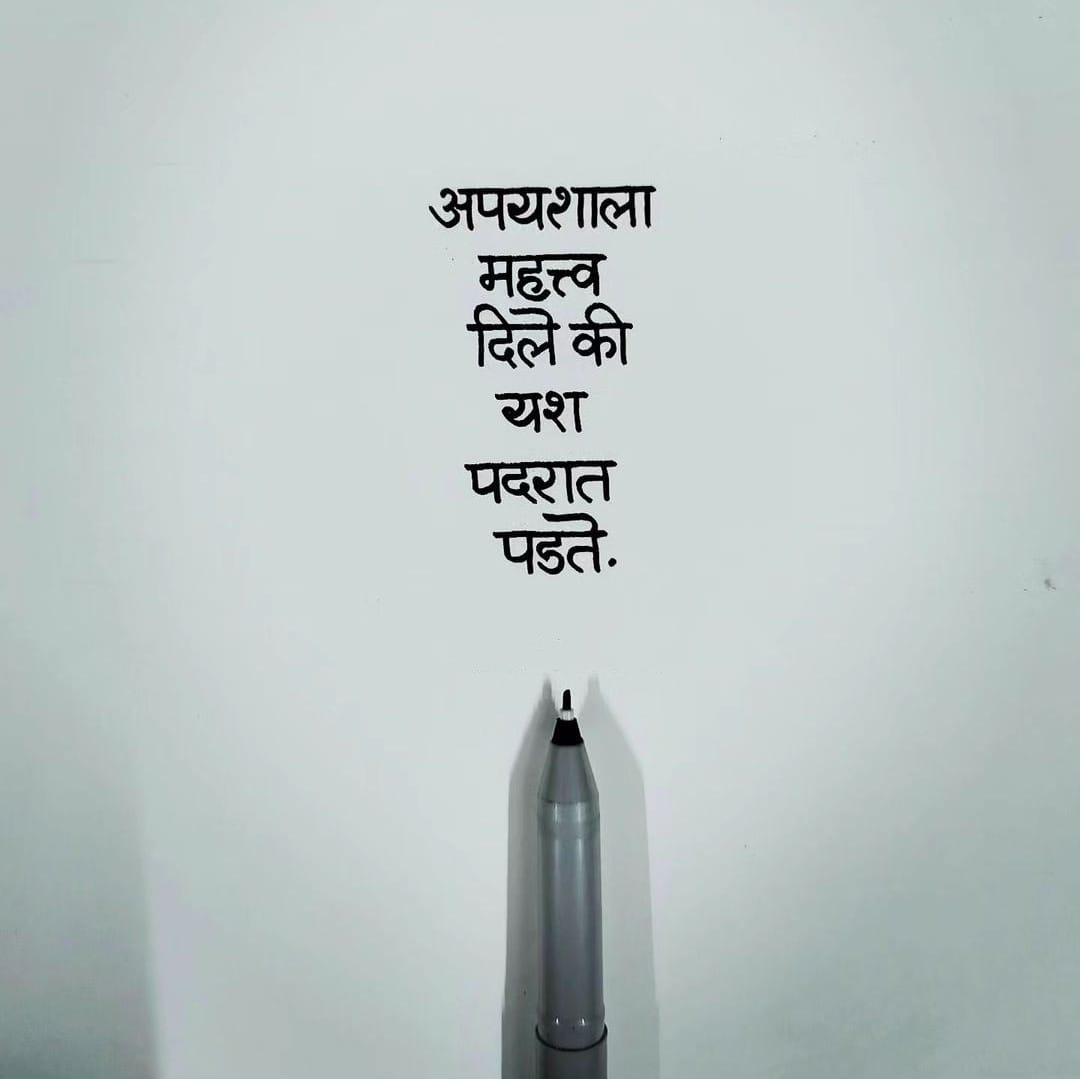 अपयशाला
महत्त्व
दिले की
यश
पदरात
पडते.